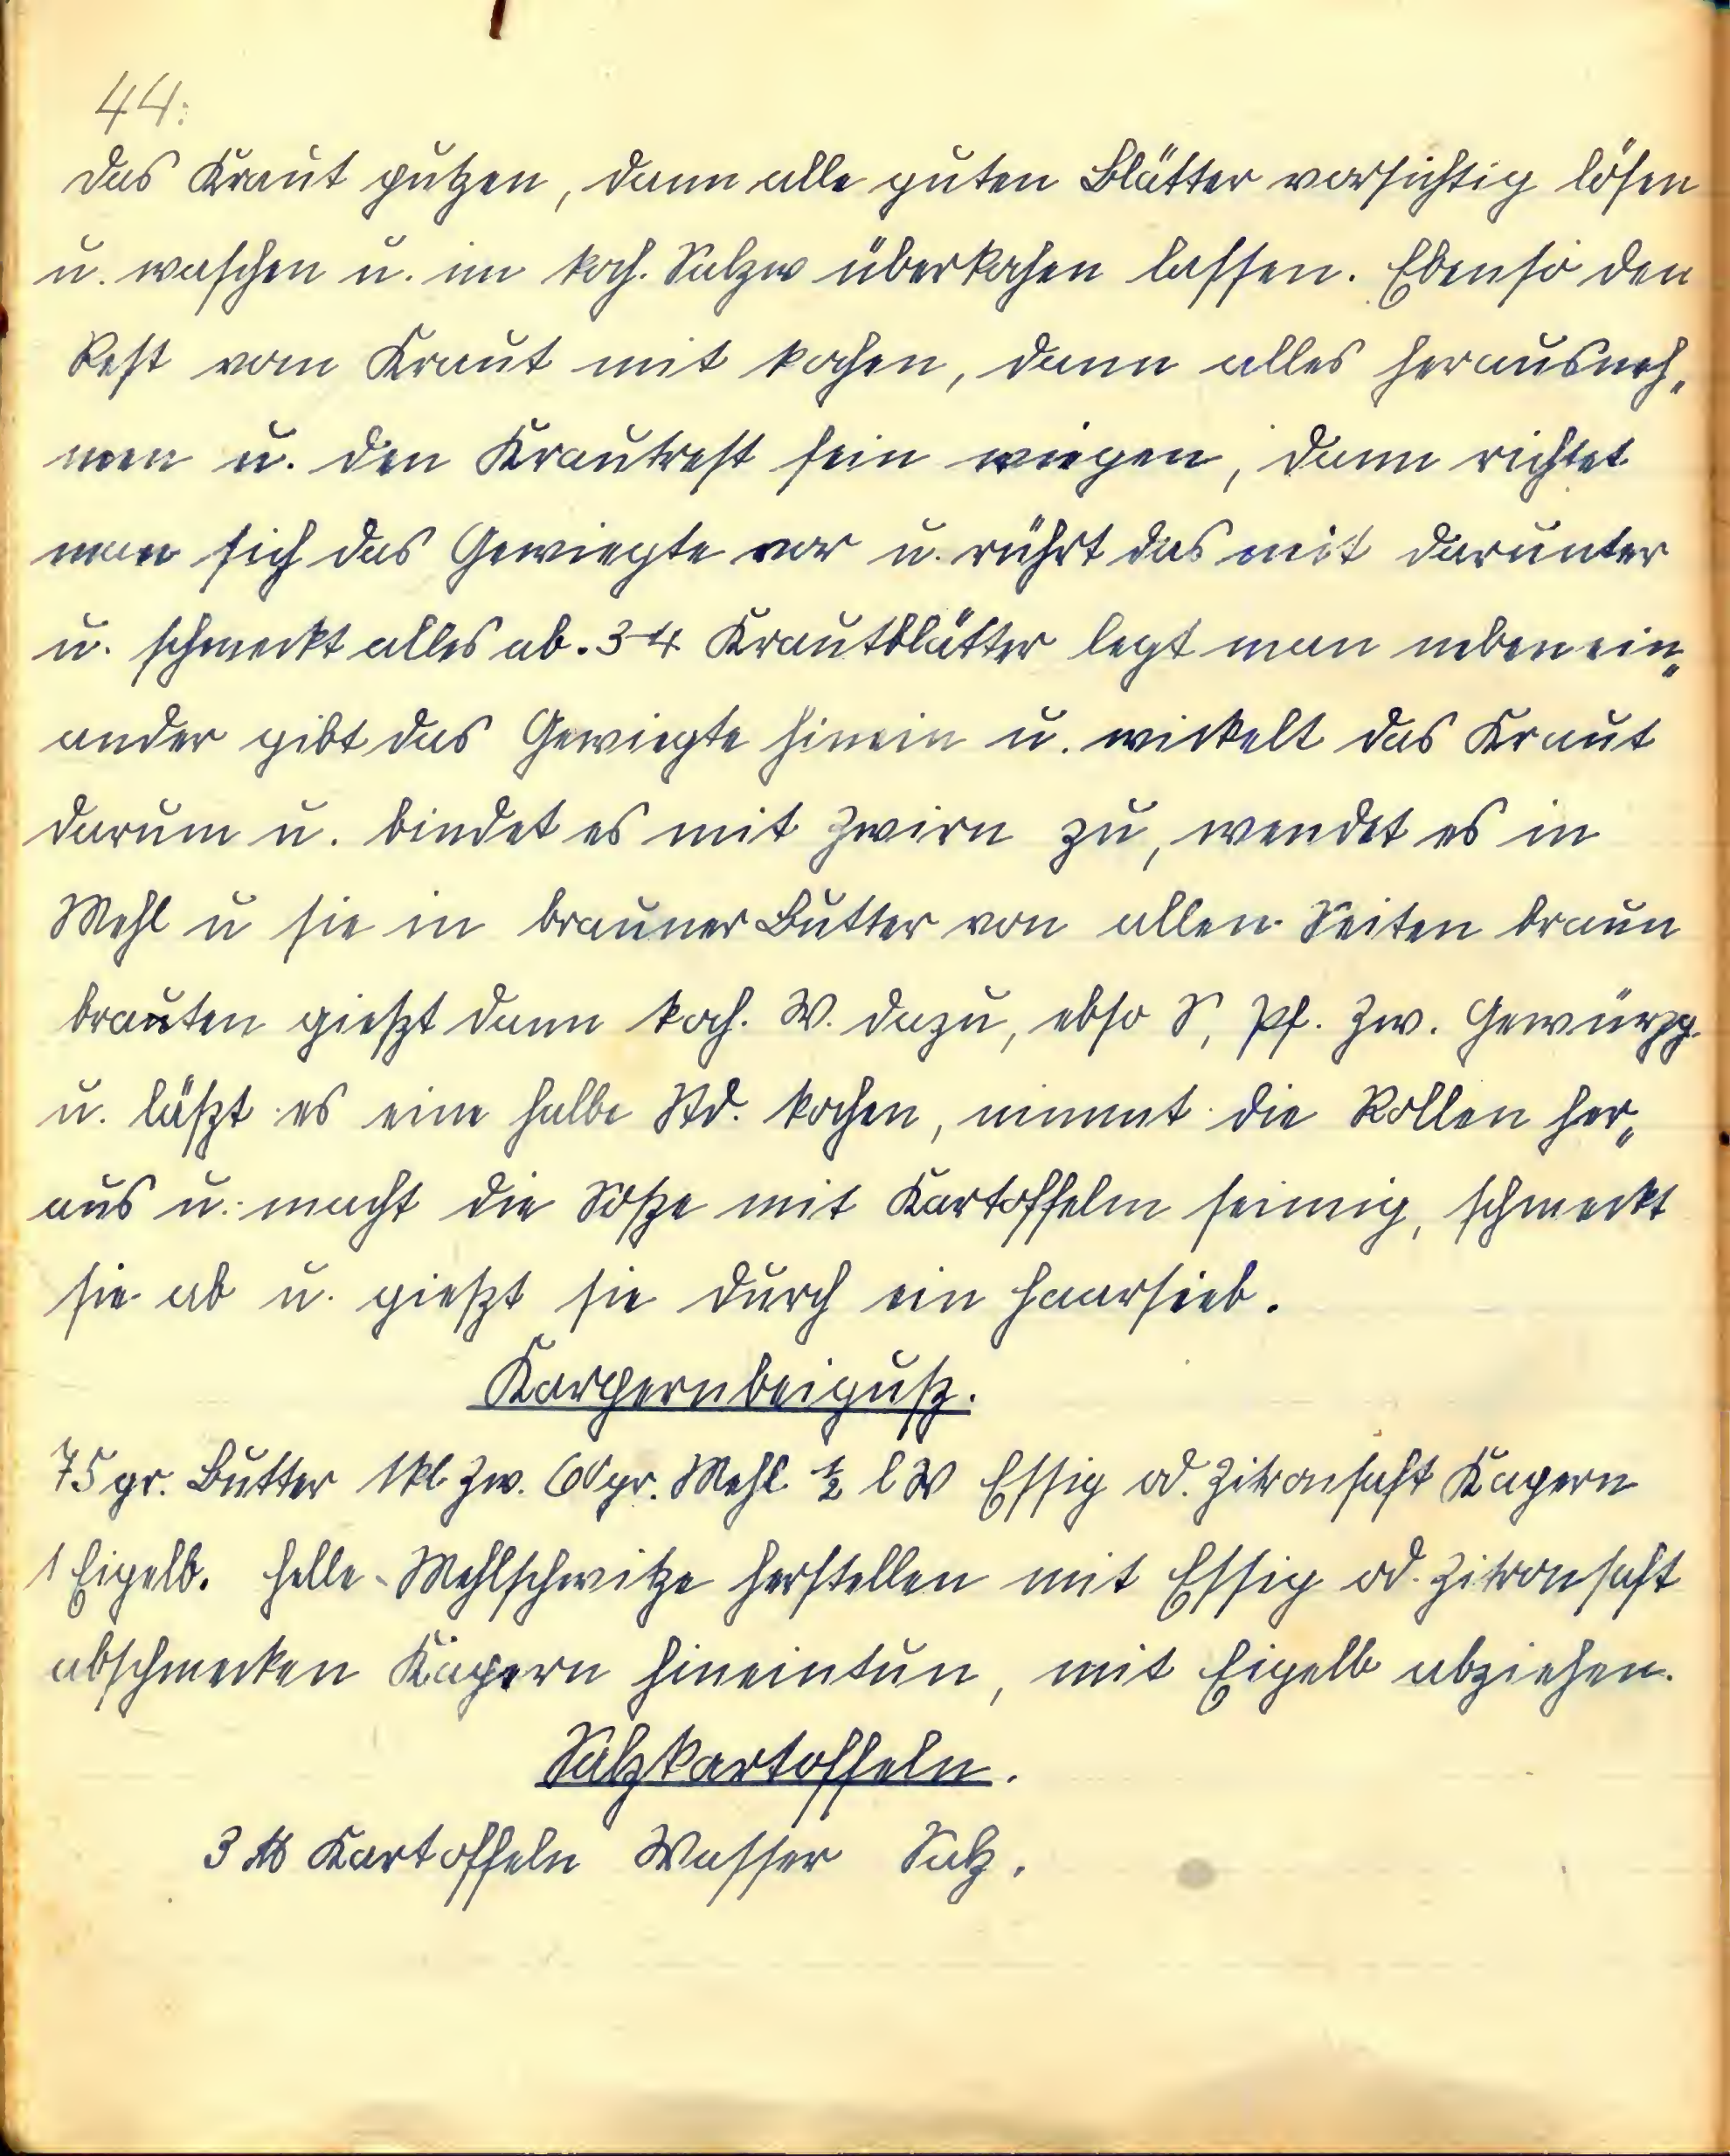 44.
Das Kraut putzen, dann alle guten Blätter vorsichtig lösen
u. waschen u. im koch. Salzw überkochen lassen. Ebenso den
Rest vom Kraut mit kochen, dann alles herausneh„
men u. den Krautrest fein wiegen, dann richtet
man sich das Gewiegte vor u. rührt das mit darunter
u. schmeckt alles ab. 3-4 Krautblätter legt man nebenein„
ander gibt das Gewiegte hinein u. wickelt das Kraut
darum u. bindet es mit Zwirn zu, wendet es in
Mehl u sie in brauner Butter von allen Seiten braun
brauten gießt dann koch. W. dazu, ebso S, Pf. Zw. Gewürzg.
u. läßt es eine halbe Std. kochen, nimmt die Rollen her„
aus u. macht die Soße mit Kartoffelm seimig, schmeckt
sie ab u. gießt sie durch ein Haarsieb.
Karpernbeiguß.
75 gr. Butter 1kl. Zw. 60 gr. Mehl ½ l W Essig od. Zitronsaft Kapern
1 Eigelb. Helle Mehlschwitze herstellen mit Essig od. Zitronsaft
abschmecken Kapern hineintun, mit Eigelb abziehen.
Salzkartoffeln.
3 ℔ Kartoffeln Wasser Salz.